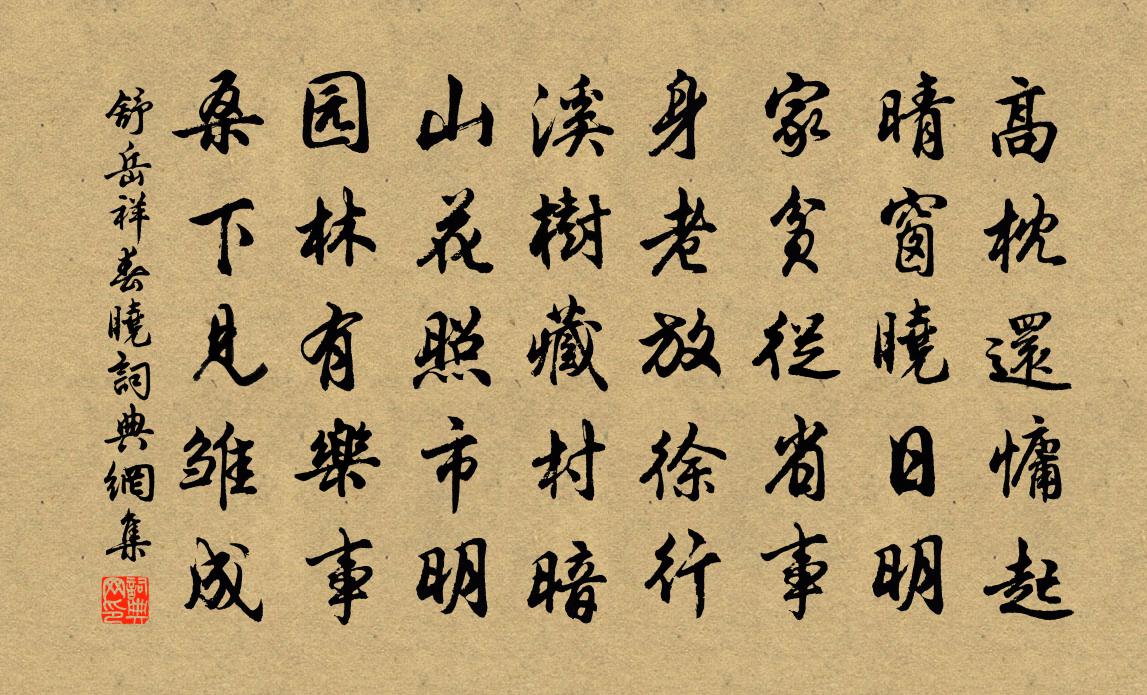 高枕還慵起
晴窗曉日明
家貧從省事
身老放徐行
溪樹藏村暗
山花照市明
园林有樂事
桑下見雏成
舒岳祥春曉詞典網集
詞典网印